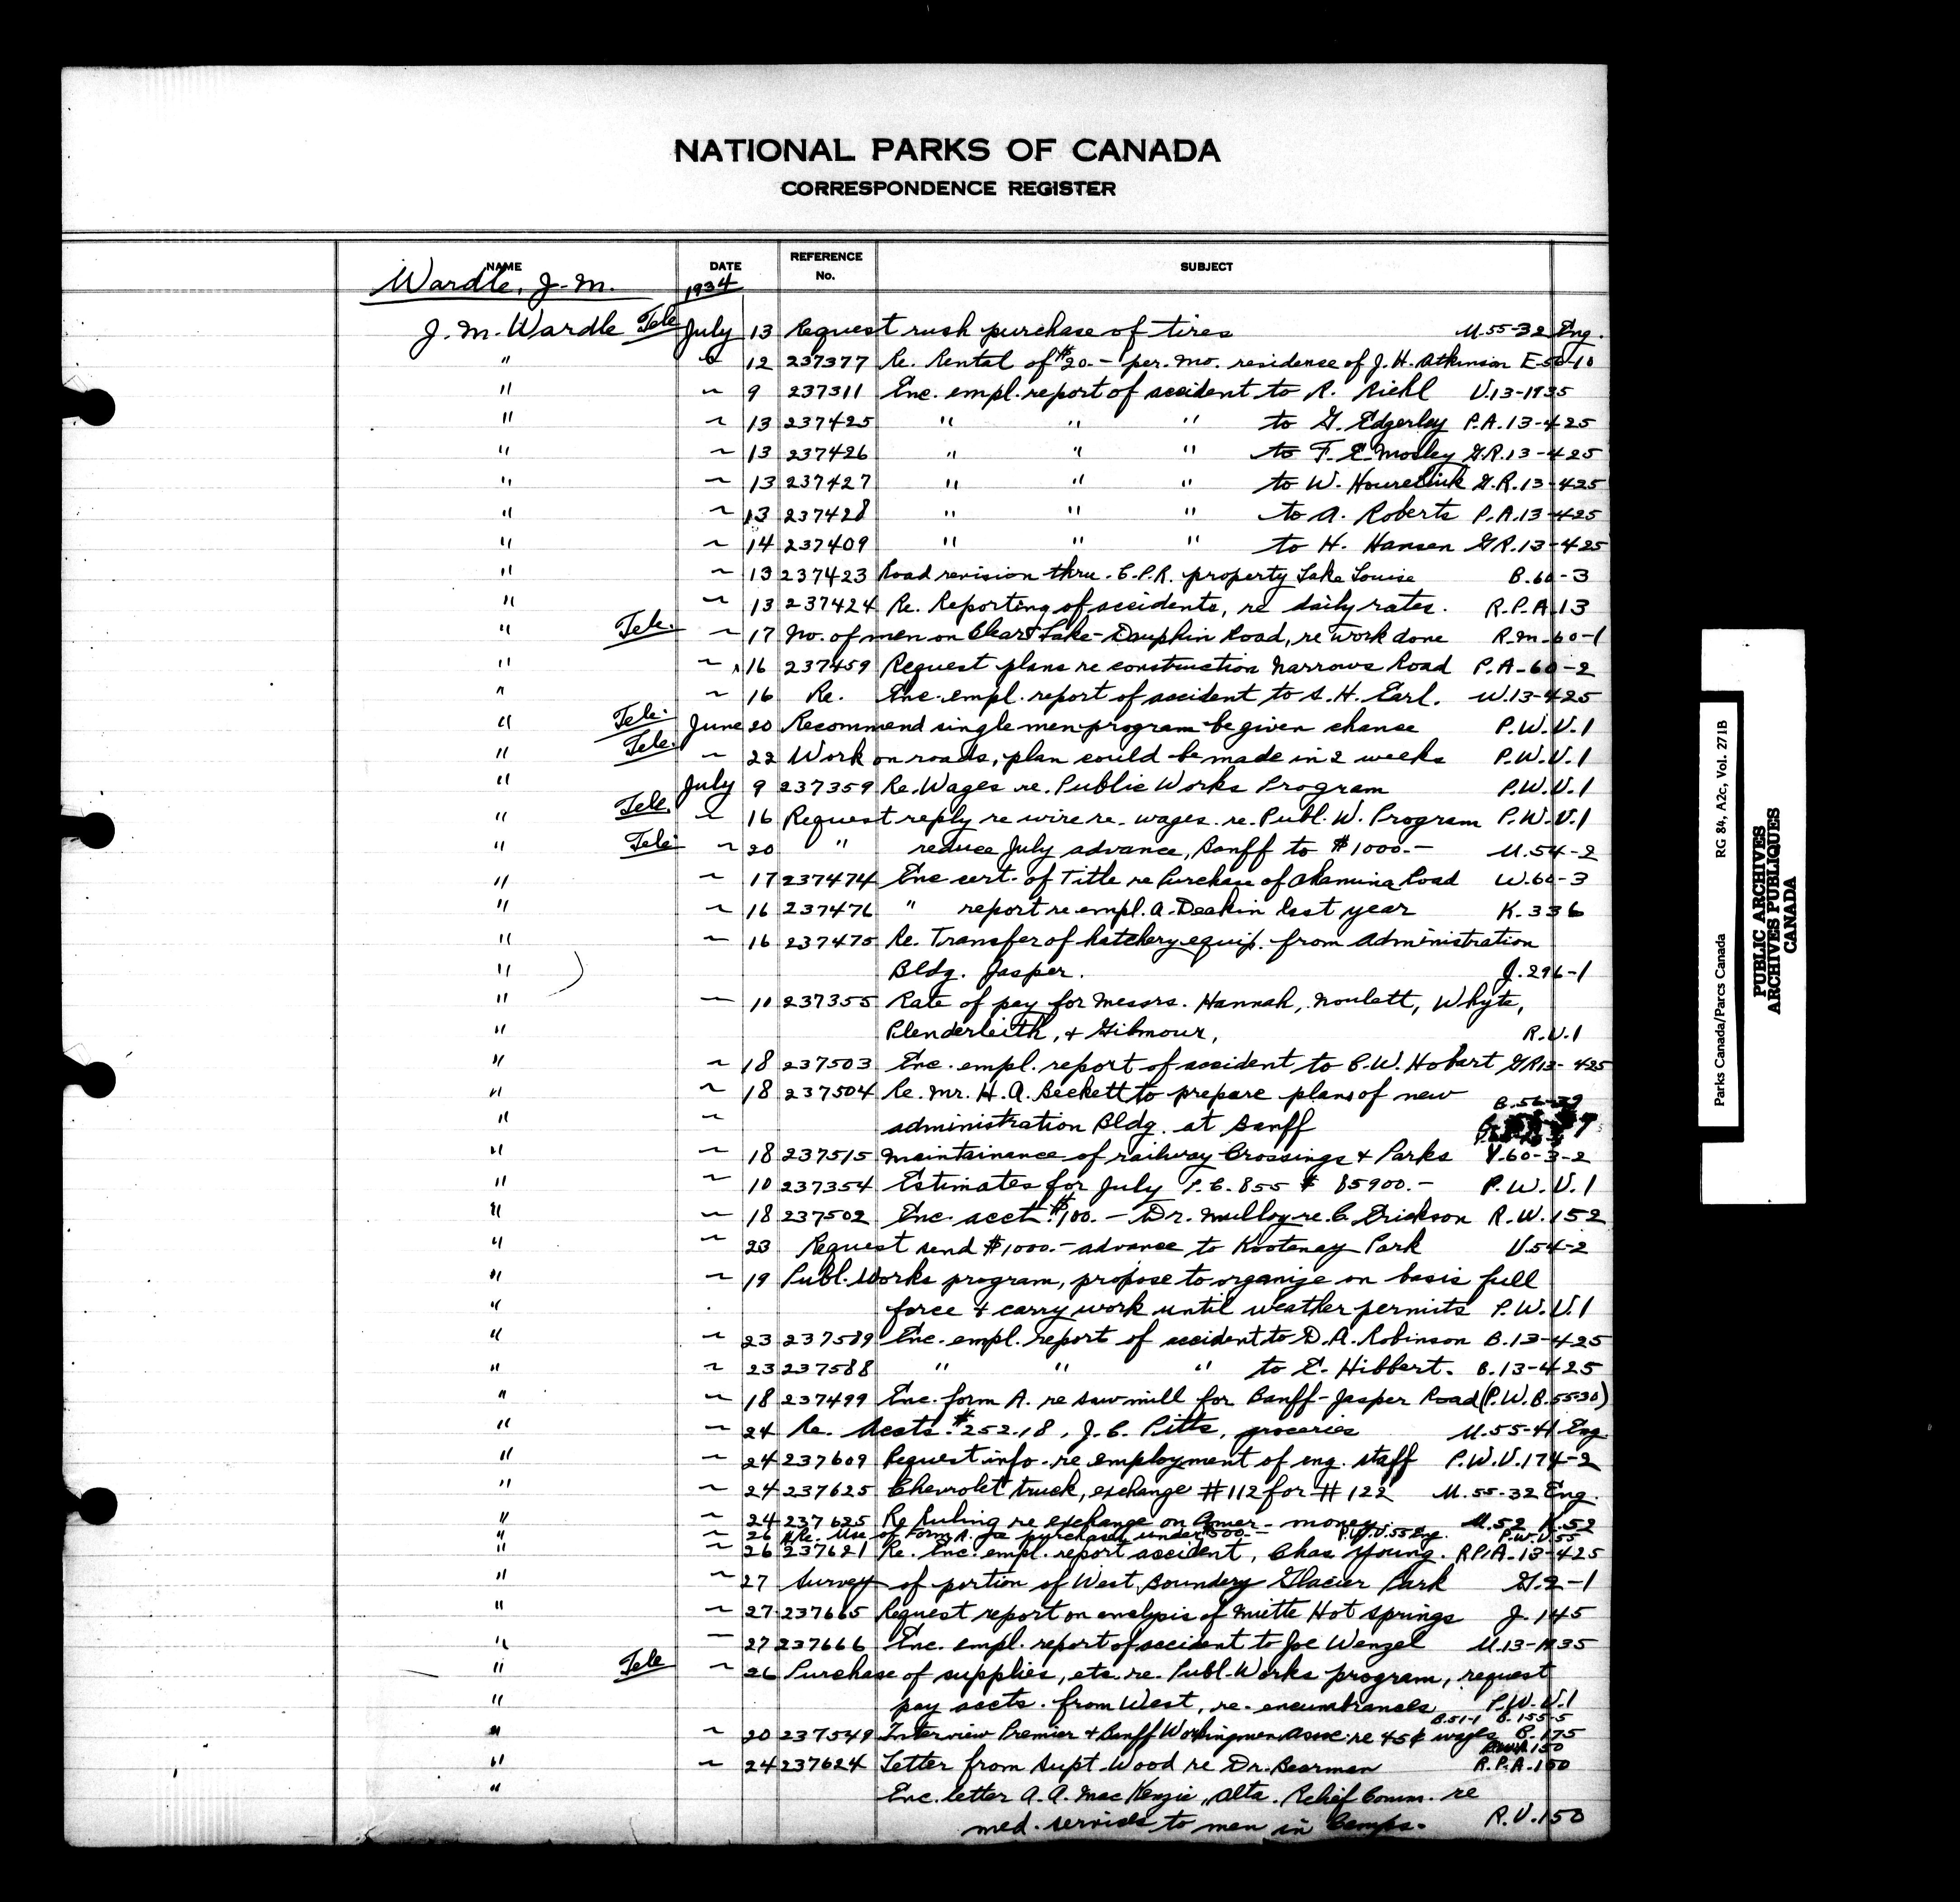 NATIONAL PARKS OF CANADA
CORRESPONDENCE REGISTER
NAME DATE REFERENCE No. SUBJECT
Wardle, J. M. 1934
J. M. Wardle Tele July 13 Request rush purchase of tires U.55-32 Eng.
" " 12 237377 Re. Rental of $20.- per. mo. residence of J. H. Atkinson E-56-10
" ~ 9 237311 Enc. empl. report of accident to R. Riehl U.13-1935
" ~ 13 237425 " " " to G. Edgerley P.A.13-425
" ~ 13 237426 " " " to F. E. Mosley G.R.13-425
" ~ 13 237427 " " " to W. G.R.13-425
" ~ 13 237428 " " " to A. Roberts P.A.13-425
" ~ 14 237409 " " " to H. Hansen G.R.13-425
" ~ 13 237423 Road revision thru. C.P.R. property Lake Louise B.60-3
" ~ 13 237424 Re. Reporting of accidents, re daily rates. R.P.A.13
" Tele. ~ 17 No. of men on Clear Lake-Dauphin Road, re work done R.M-60-1
" ~ 16 237459 Request plans re construction Narrows Road P.A-60-2
" ~ 16 Re. Enc. empl. report of accident to S. H. Earl. W.13-425
" Tele. June 20 Recommend single men program be given chance P.W.U.1
" Tele. ~ 22 Work on roads, plan could be made in 2 weeks P.W.U.1
" July 9 237359 Re. Wages re. Public Works Program P.W.U.1
" Tele. ~ 16 Request reply re wire re. wages re. Publ. W. Program P.W.U.1
" Tele ~ 20 " reduce July advance, Banff to $1000.- U.54-2
" ~ 17 237474 Enc cert. of Title re Purchase of Akamina Road W.60-3
" ~ 16 237476 " report re empl. A. Deakin last year K.336
" ~ 16 237475 Re. Transfer of hatchery equip. from Administration
" Bldg. Jasper. J.296-1
" ~ 10 237355 Rate of pay for Messrs. Hannah, Whyte,
" Plenderleith, & Gilmour, R.U.1
" ~ 18 237503 Enc. empl. report of accident to C. W. Hobart G.R13-425
" ~ 18 237504 Re. Mr. H. A. Beckett to prepare plans of new B.56-39
" ~ administration Bldg. at Banff
" ~ 18 237515 Maintainance of railway Crossings & Parks U.60-3-2
" ~ 10 237354 Estimates for July P.C. 855 $ 85900.- P.W.U.1
" ~ 18 237502 Enc. acct. $100.- Dr. Mulloy re. C. Erickson R.W.152
" ~ 23 Request send $1000.- advance to Kootenay Park U.54-2
" ~ 19 Publ. Works program, propose to organize on basis full
" force & carry work until weather permits P.W.U.1
" ~ 23 237589 Enc. empl. report of accident to D. A. Robinson B.13-425
" ~ 23 237588 " " " to E. Hibbert. B.13-425
" ~ 18 237499 Enc. form A. re sawmill for Banff-Jasper Road (P.W.B.55-30)
" ~ 24 Re. Accts. $252.18, J. C. Pitts, groceries U.55-41 Eng
" ~ 24 237609 Request info. re employment of eng. staff P.W.U.174-2
" ~ 24 237625 Chevrolet truck, exchange #112 for #122 U.55-32 Eng.
" ~ 24 237625 Re Ruling re exchange on Amer- money. U.52 K.52
" ~ 26 Re. Use of Form A. re purchases under $500.- P.W.U.55 Eng. P.W.U.55
" ~ 26 237621 Re. Enc. empl. report accident, Chas Young. R.P.A-13-425
" ~ 27 Survey of portion of West Boundery Glacier Park G.2-1
" ~ 27 237665 Request report on analysis of Miette Hot Springs J.145
" ~ 27 237666 Enc. empl. report of accident to Joe Wenzel U.13-1935
" Tele ~ 26 Purchase of supplies, etc. re. Publ. Works program, request
" pay accts. from West, re-encumbrances P.W.U.1
" ~ 20 237549 Interview Premier & Banff Workingmen Assoc. re 45¢ wages B.51-1 B.155-5 B.175
" ~ 24 237624 Letter from Supt. Wood re Dr. Bearman R.P.A.150
" Enc. letter A. A. Mac Kenzie, Alta. Relief Comm. re
med. services to men in Camps. R.U.150
Parks Canada/Parcs Canada RG 84, A2c, Vol. 271B
PUBLIC ARCHIVES
ARCHIVES PUBLIQUES
CANADA